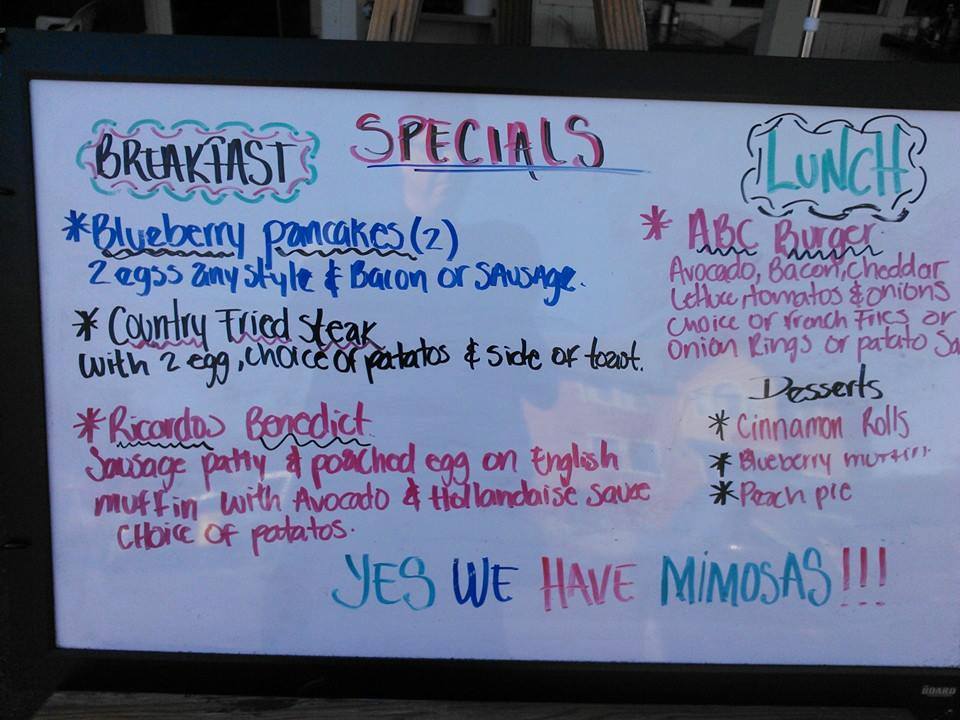 SPECIALS
BREAKFAST
*Blueberry pancakes (2)
2 egss any style & Bacon or SAUSAGE.
* Country Fried steak
with 2 egg, choice of patatos & side of toast.
*Ricardos Benedict
Sausage patty & poached egg on English
muffin with Avocado & Hollandaise sauce
CHoice of patatos.
LUNCH
* ABC Burger
Avocado, Bacon, cheddar
Lettuce, tomatos & onions
choice or French Fries or
onion Rings or patato
Desserts
* Cinnamon Rolls
* Blueberry muffin
* Peach pie
YES WE HAVE MIMOSAS!!!
BOARD